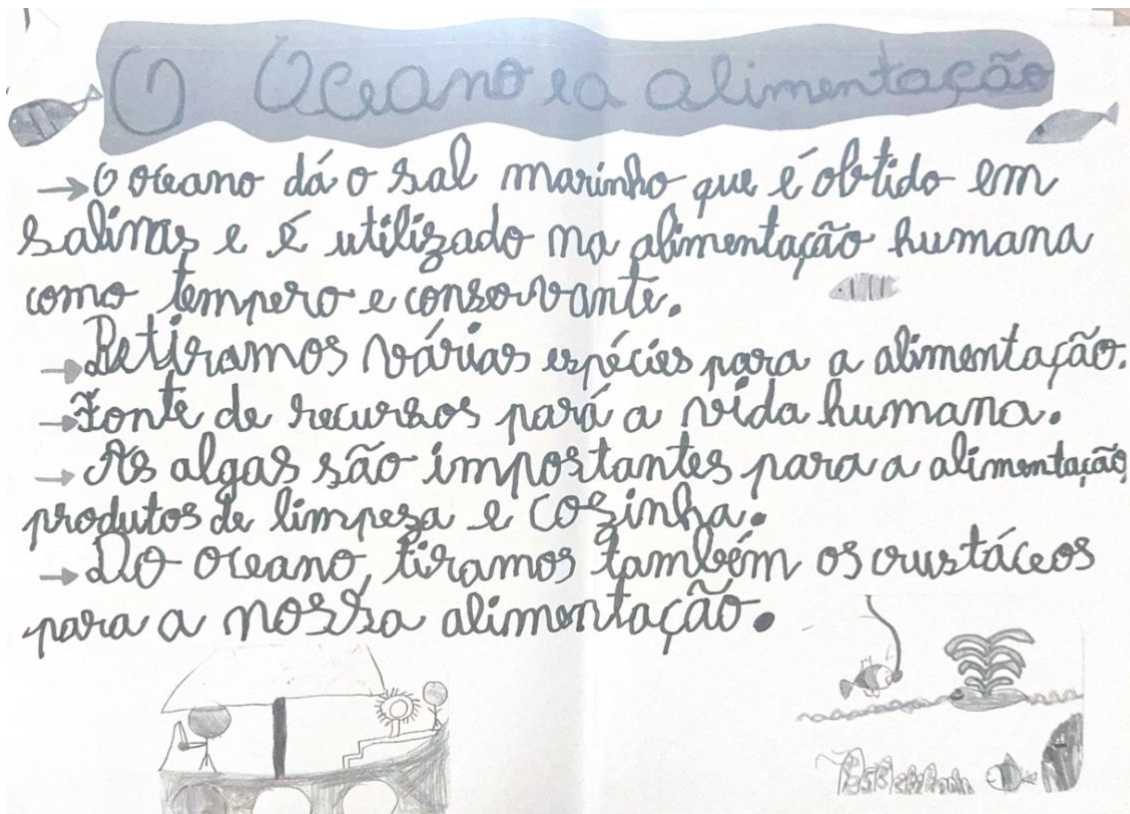 O Oceano e a alimentação
→ O oceano dá o sal marinho que é obtido em
salinas e é utilizado na alimentação humana
como tempero e conservante.
→ Retiramos várias espécies para a alimentação.
→ Fonte de recursos pará a vida humana.
→ As algas são importantes para a alimentação,
produtos de limpeza e cozinha.
→ Do oceano, tiramos também os crustáceos
para a nossa alimentação.